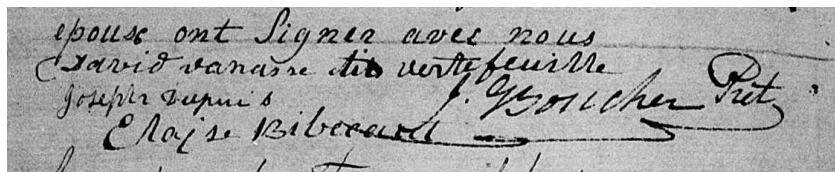 epoux ont Signer avec nous
David vanasse dit vertefeuille
Joseph Dupuis
J. Boucher Pret
Elojse Bibeeaud